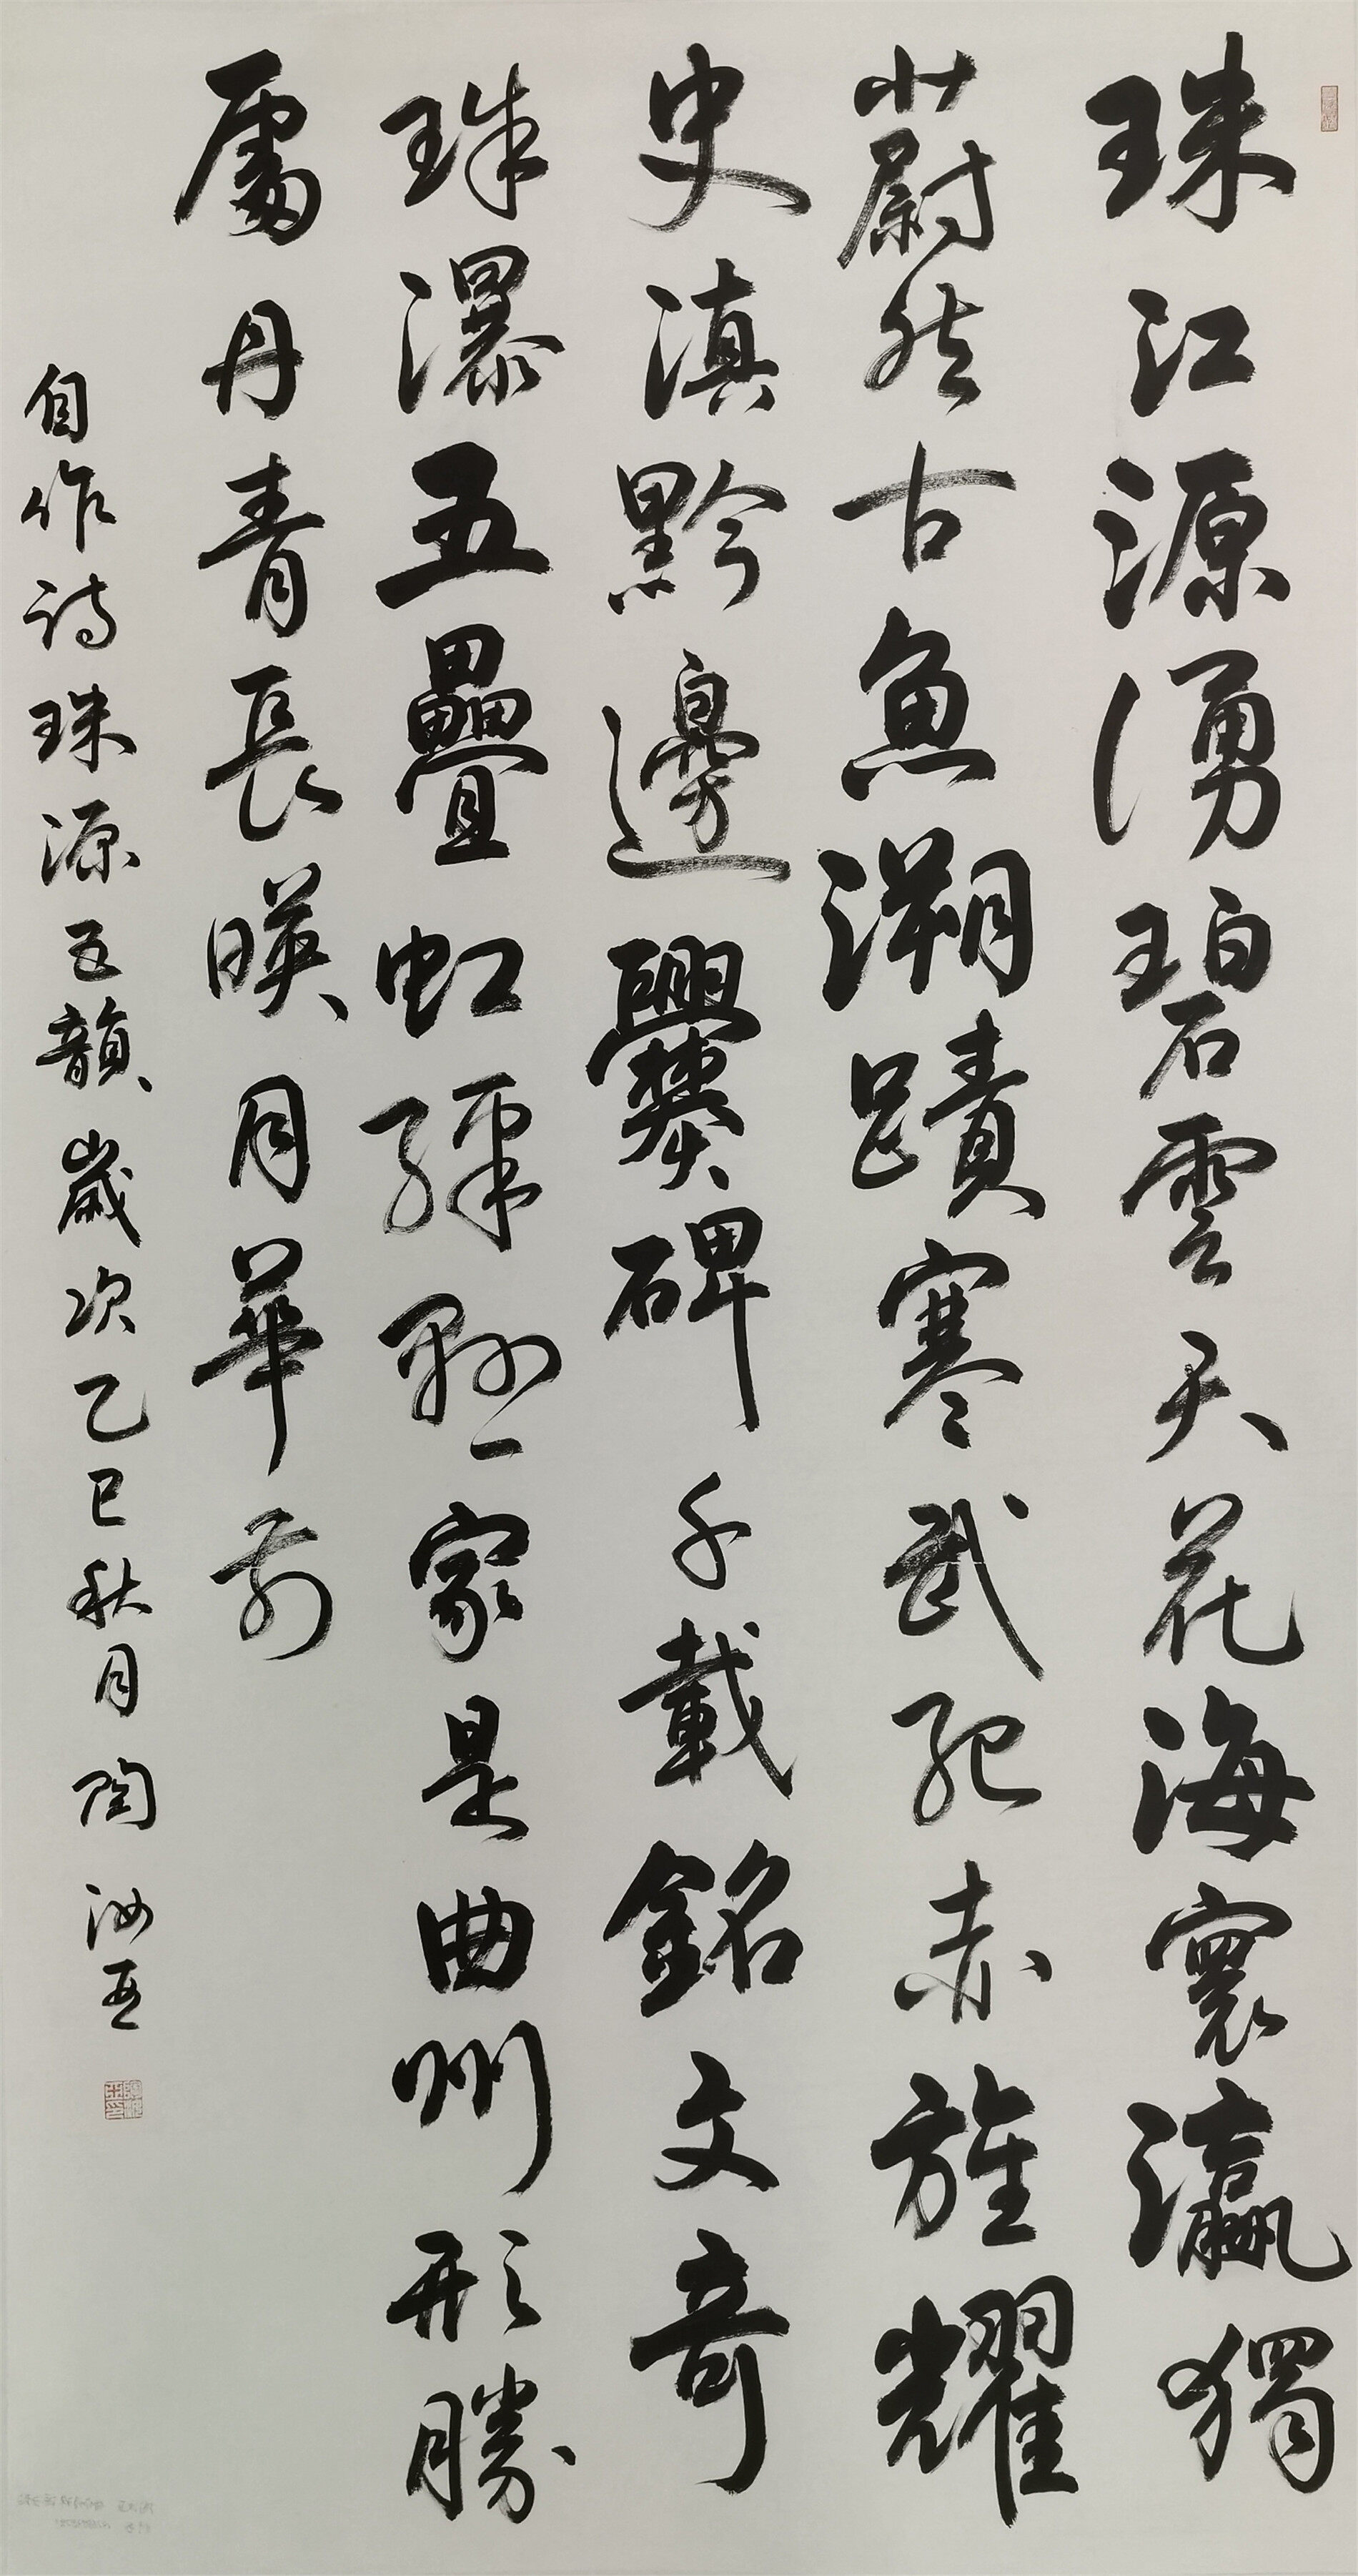 珠江源湧碧雲天花海寰瀛獨
蔚然古魚溯蹟寒武紀赤旌耀
史滇黔邊爨碑千載銘文奇
珠瀑五疊虹霓懸家是曲州形勝
屬丹青長暎月華前
自作詩珠源五韻歲次乙巳秋月陶汝